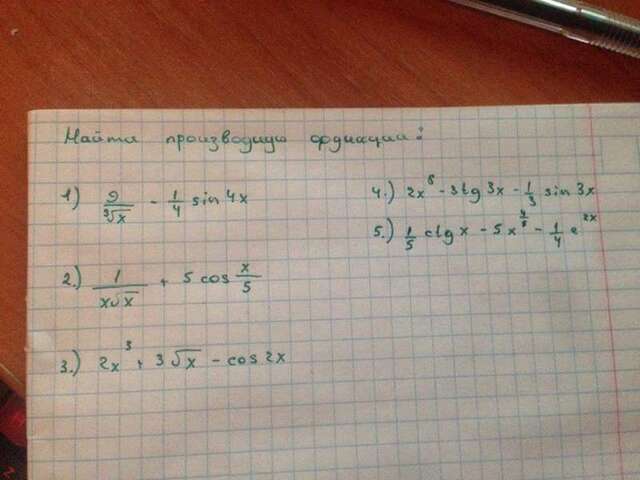 Найти производную функции:
1) 9/∛x - 1/4 sin 4x
2.) 1/x√x + 5 cos x/5
3.) 2x³ + 3√x - cos 2x
4.) 2x⁸ - 3tg 3x - 1/3 sin 3x
5.) 1/5 ctg x - 5x^(4/5) - 1/4 e^(2x)